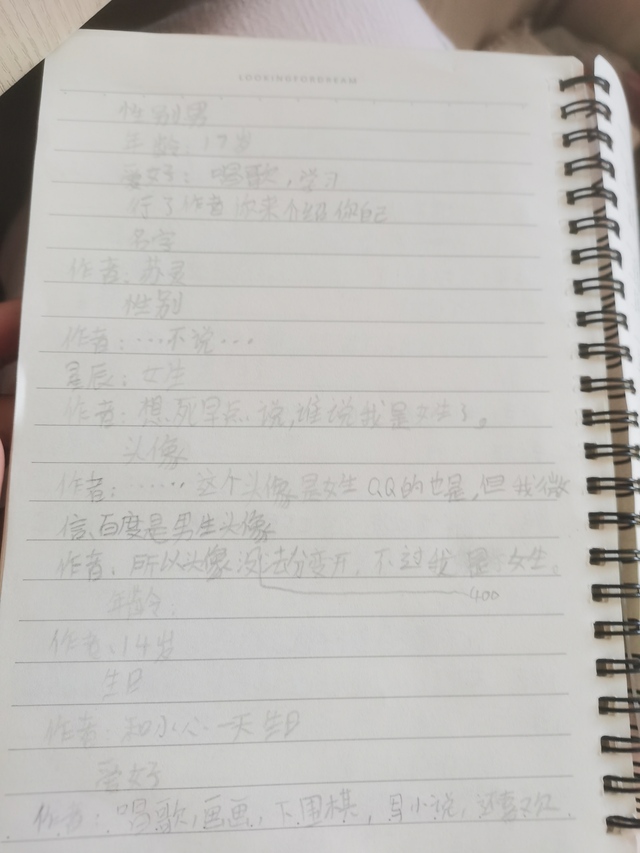 LOOKINGFORDREAM
性别男
年龄：17岁
爱好：唱歌，学习
行了作者你来介绍你自己
名字
作者：苏灵
性别
作者：…不说…
星辰：女生
作者：想死早点说，谁说我是女生了。
头像
作者：……这个头像是女生QQ的也是，但我微
信、百度是男生头像
作者：所以头像没法分变开，不过我是女生。
400
年龄：
作者：14岁
生日
作者：和水心一天生日
爱好
作者：唱歌，画画，下围棋，写小说，还喜欢